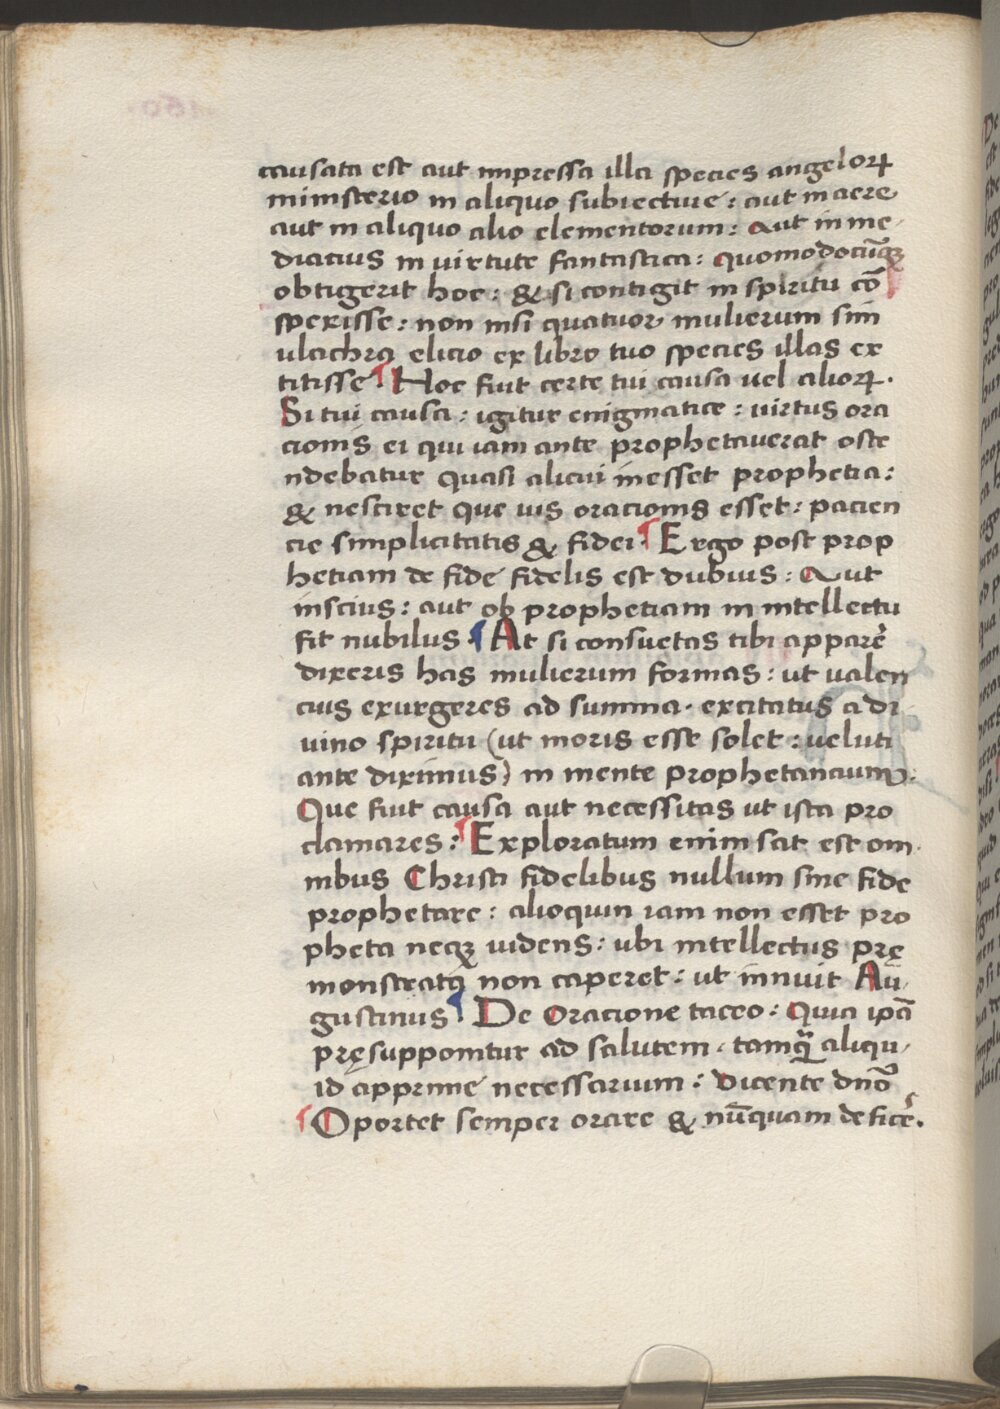 causata est aut impressa illa species angeloꝝ
ministerio in aliquo subiectiue: aut in aere
aut in aliquo alio elementorum: Aut in me
diacius in virtute fantastica: quomodocūqꝫ
obtigerit hoc: & si contigit in spiritu cō
spexisse: non nisi quatuor mulierum sim
ulachra elicio ex libro tuo species illas ex
titisse ¶ Hoc fiut certe tui causa uel alioꝝ.
Si tui causa: igitur enigmatice: virtus ora
cionis ei qui iam ante prophetauerat oste
ndebatur quasi alicui inesset prophetia:
& nesciret que uis oracionis esset: pacien
cie simplicitatis & fidei ¶ Ergo post prop
hetiam de fide fidelis est dubius: Aut
inscius: aut ob prophetiam in intellectu
fit nubilus ¶ At si consuetas tibi apparē
dixeris has mulierum formas: ut ualen
cius exurgeres ad summa. excitatus a di
uino spiritu (ut moris esse solet: veluti
ante diximus) in mente prophetancium:
Que fiut causa aut necessitas ut ista pro
clamares: ¶ Exploratum enim sat est om
nibus Christi fidelibus nullum sine fide
prophetare: alioquin iam non esset pro
pheta neqꝫ uidens: ubi intellectus prę
monstratā non caperet: ut innuit Au
gustinus ¶ De Oracione taceo: Quia ipā
pręsupponitur ad salutem. tamqꝫ aliqu
id apprime necessarium: dicente dnō
¶ Oportet semper orare & nūquam deficē.